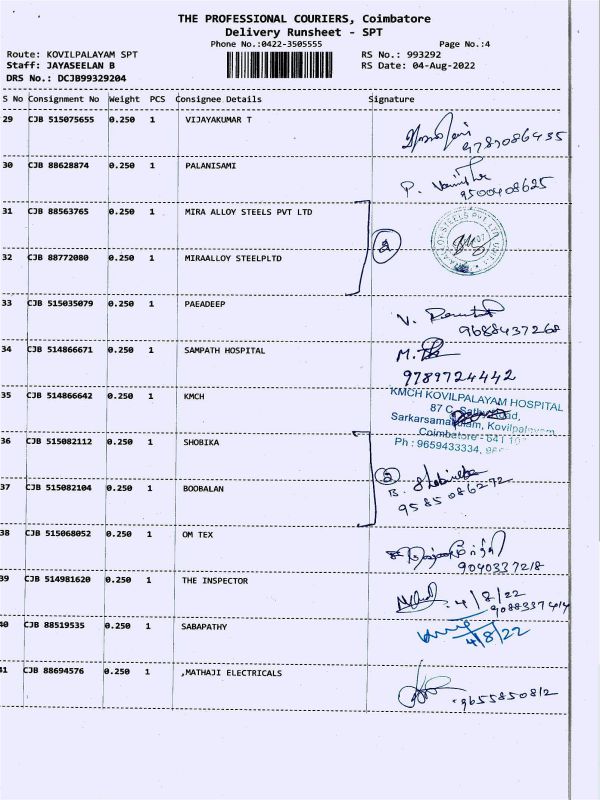 THE PROFESSIONAL COURIERS, Coimbatore
Delivery Runsheet - SPT
Phone No.:0422-3505555 Page No.:4
Route: KOVILPALAYAM SPT RS No.: 993292
Staff: JAYASEELAN B RS Date: 04-Aug-2022
DRS No.: DCJB99329204
S No Consignment No Weight PCS Consignee Details Signature
29 CJB 515075655 0.250 1 VIJAYAKUMAR T
9787086435
30 CJB 88628874 0.250 1 PALANISAMI
P.
9500408625
31 CJB 88563765 0.250 1 MIRA ALLOY STEELS PVT LTD
2
32 CJB 88772080 0.250 1 MIRAALLOY STEELPLTD
33 CJB 515035079 0.250 1 PAEADEEP
V.
9688437268
34 CJB 514866671 0.250 1 SAMPATH HOSPITAL
M.
9789724442
35 CJB 514866642 0.250 1 KMCH
KMCH KOVILPALAYAM HOSPITAL
87 C, Sathy Road,
Sarkarsamakulam, Kovilpalayam
Coimbatore - 641 107
Ph : 9659433334,
36 CJB 515082112 0.250 1 SHOBIKA
2
37 CJB 515082104 0.250 1 BOOBALAN
B. Shobika
9585086272
38 CJB 515068052 0.250 1 OM TEX
9040337218
39 CJB 514981620 0.250 1 THE INSPECTOR
4/8/22
9088337414
40 CJB 88519535 0.250 1 SABAPATHY
4/8/22
41 CJB 88694576 0.250 1 ,MATHAJI ELECTRICALS
9655850812